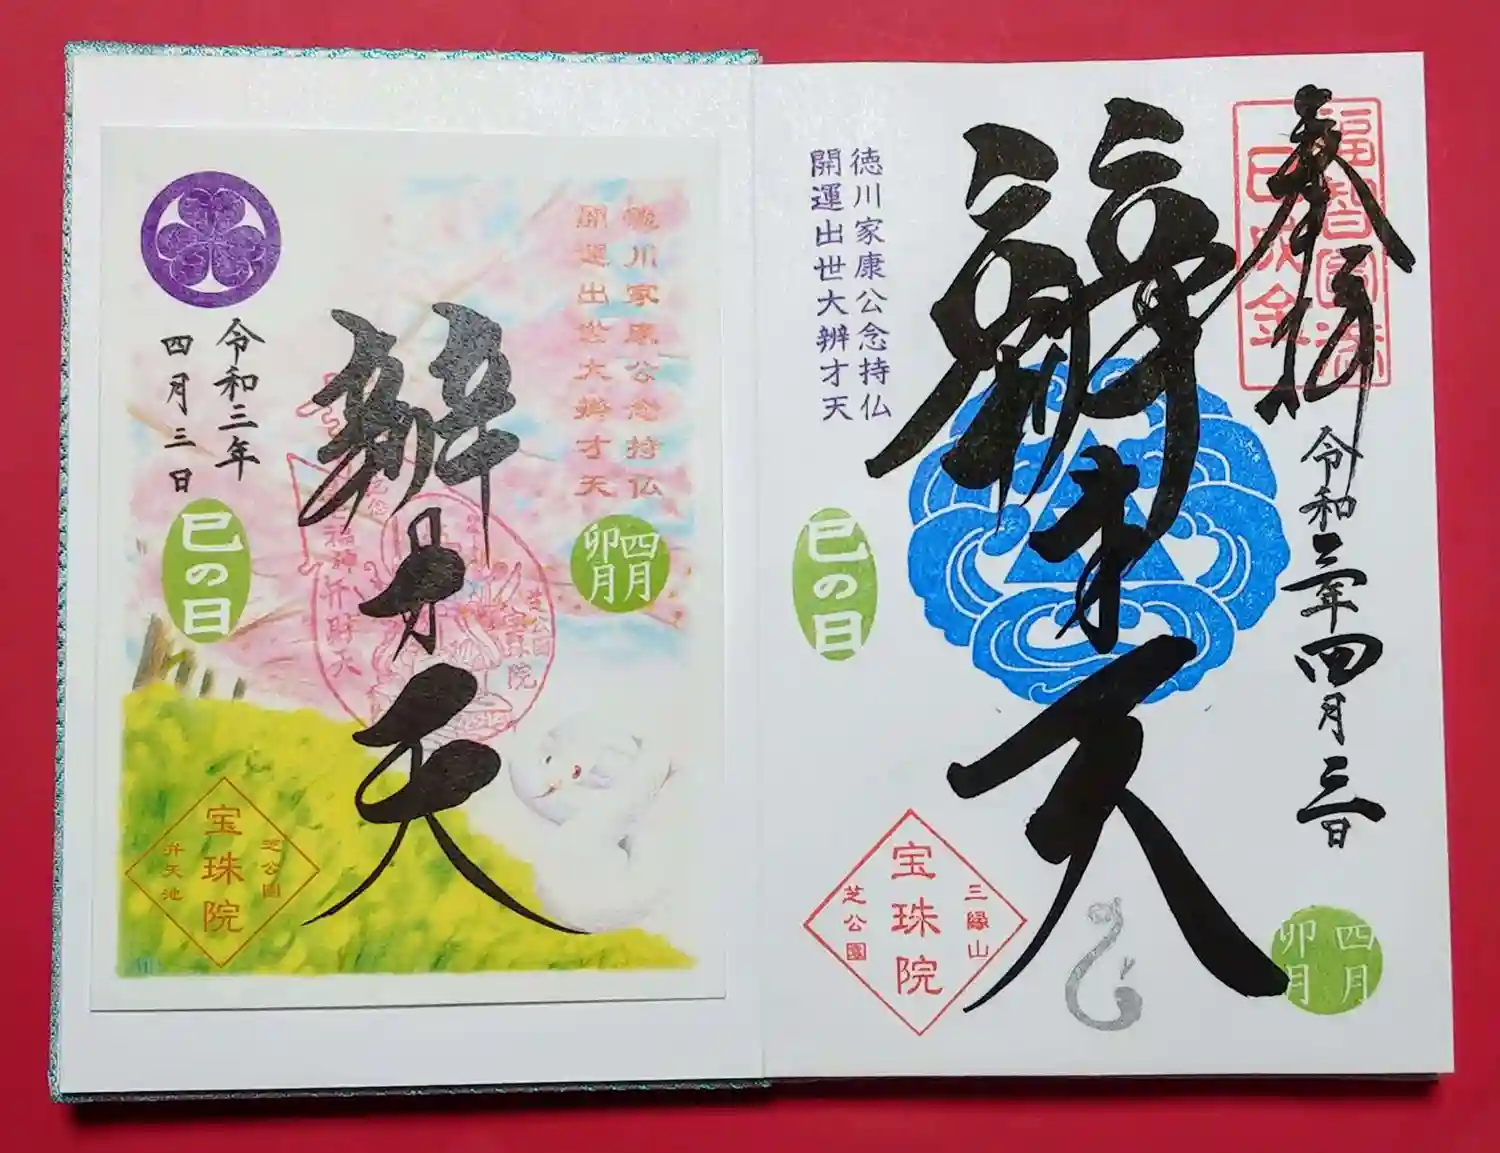 徳川家康公念持仏
開運出世大辨才天
辨才天
令和三年
四月三日
巳の日
四月
卯月
芝公園
宝珠院
弁財天
芝公園
宝珠院
弁天池
奉拝
令和三年四月三日
辨才天
徳川家康公念持仏
開運出世大辨才天
巳の日
三縁山
宝珠院
芝公園
四月
卯月